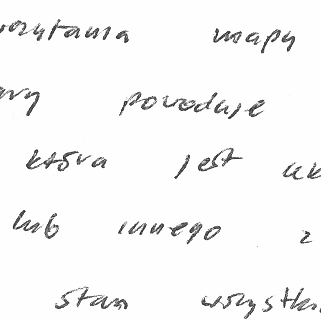 wczytania mapy
powoduje
która jest
lub innego z
stan wszystki